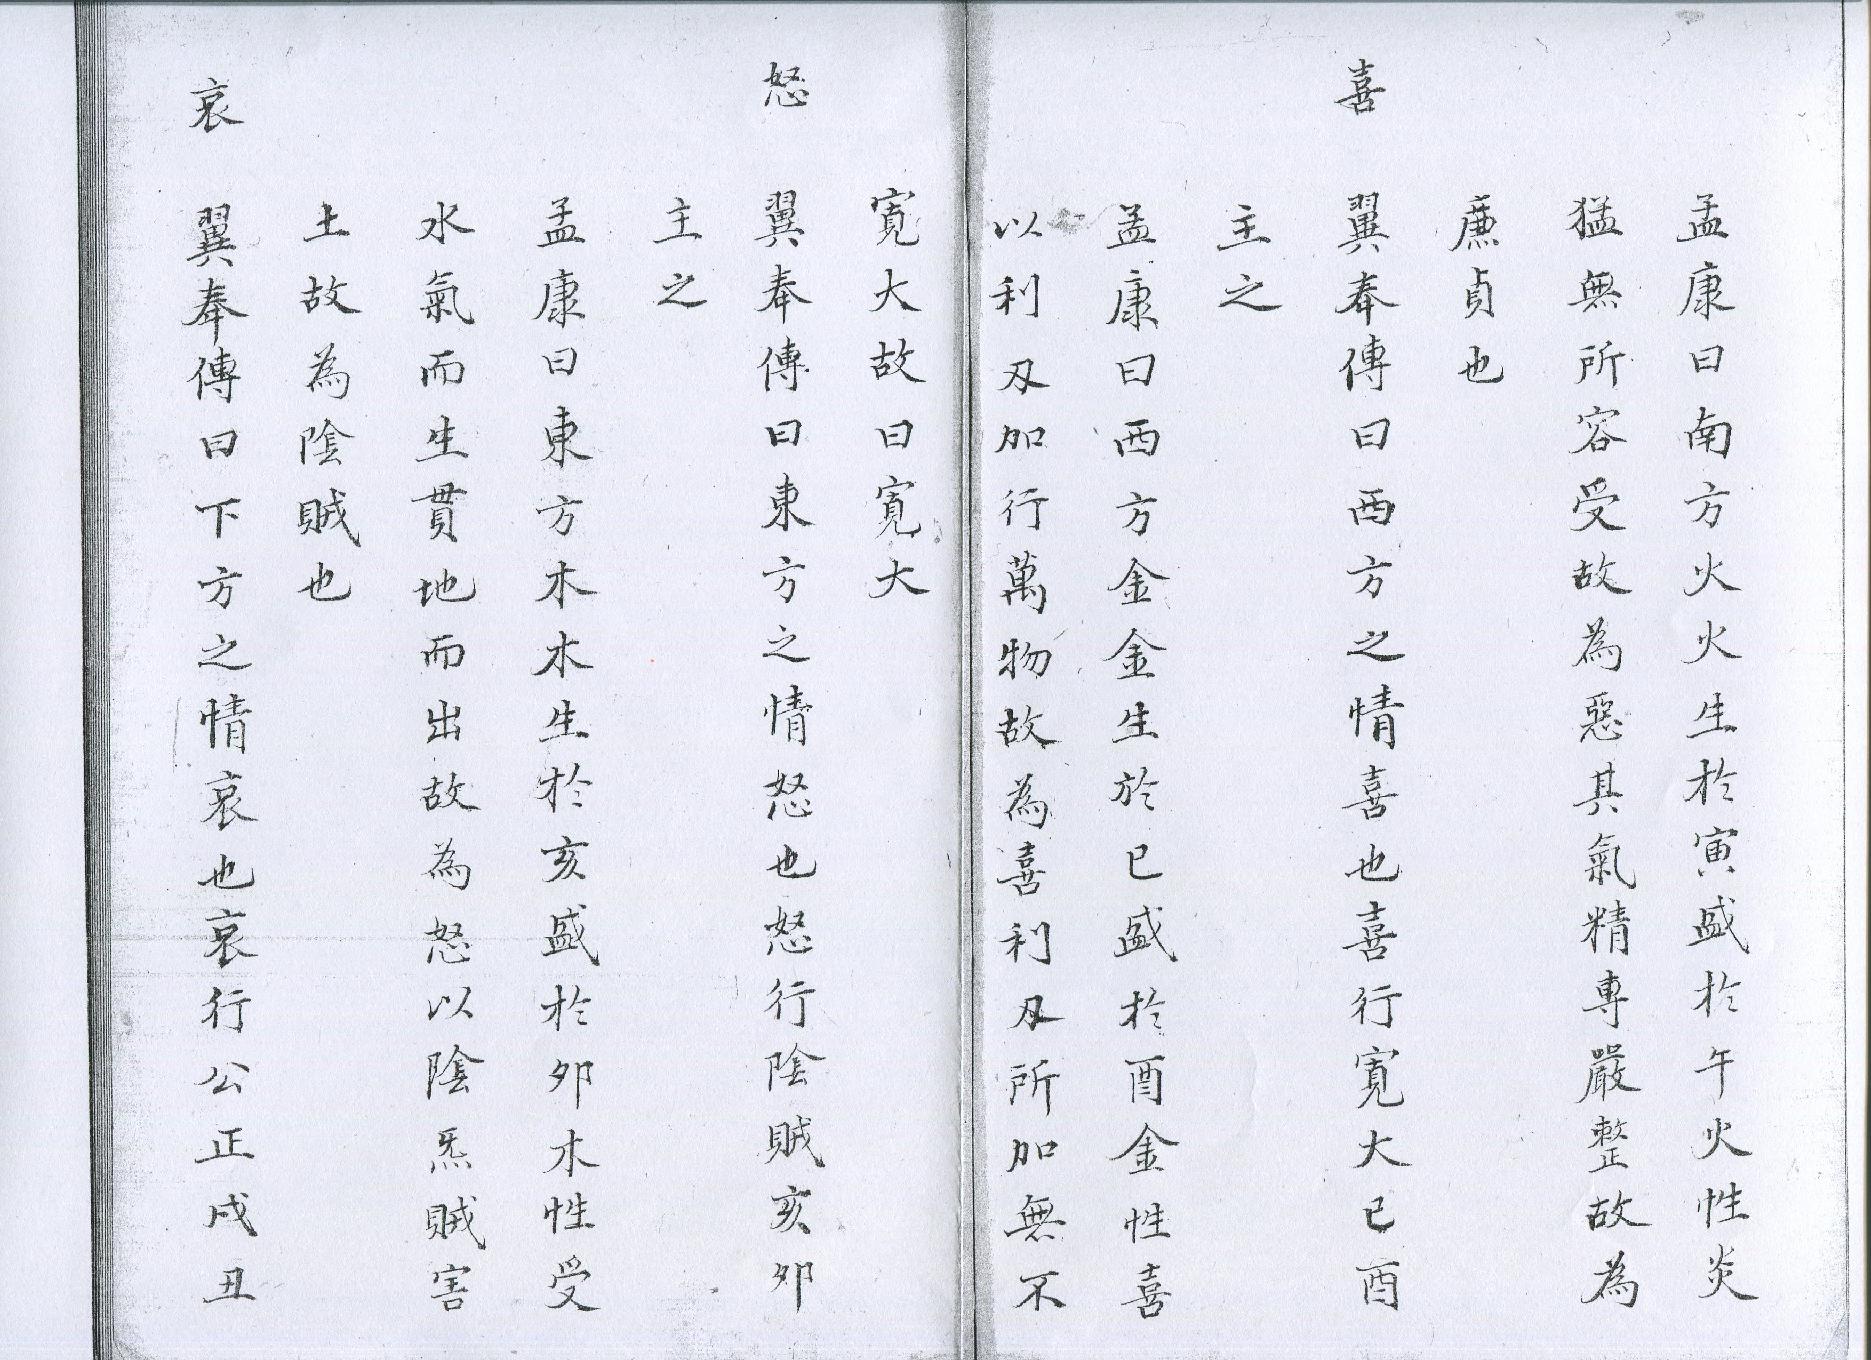 孟康曰南方火火生於寅盛於午火性炎
猛無所容受故為惡其氣精專嚴整故為
廉貞也
喜
翼奉傳曰西方之情喜也喜行寬大巳酉
主之
孟康曰西方金金生於巳盛於酉金性喜
以利刃加行萬物故為喜利刃所加無不
寬大故曰寬大
怒
翼奉傳曰東方之情怒也怒行陰賊亥卯
主之
孟康曰東方木木生於亥盛於卯木性受
水氣而生貫地而出故為怒以陰炁賊害
土故為陰賊也
哀
翼奉傳曰下方之情哀也哀行公正戌丑